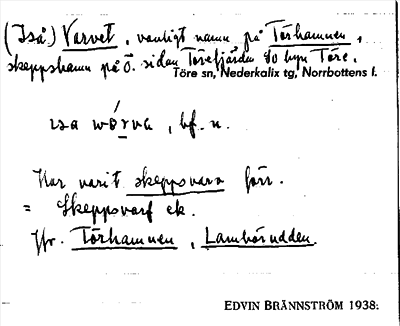 (Iså) Varvet, vanligt namn på Törhamnen,
skeppshamn på ö. sidan Törefjärden SO byn Töre.
Töre sn, Nederkalix tg, Norrbottens l.
bf. n.
Har varit skeppsvarv förr.
= Skeppsvarf ek.
Jfr. Törhamnen, Lambörudden.
EDVIN BRÄNNSTRÖM 1938.